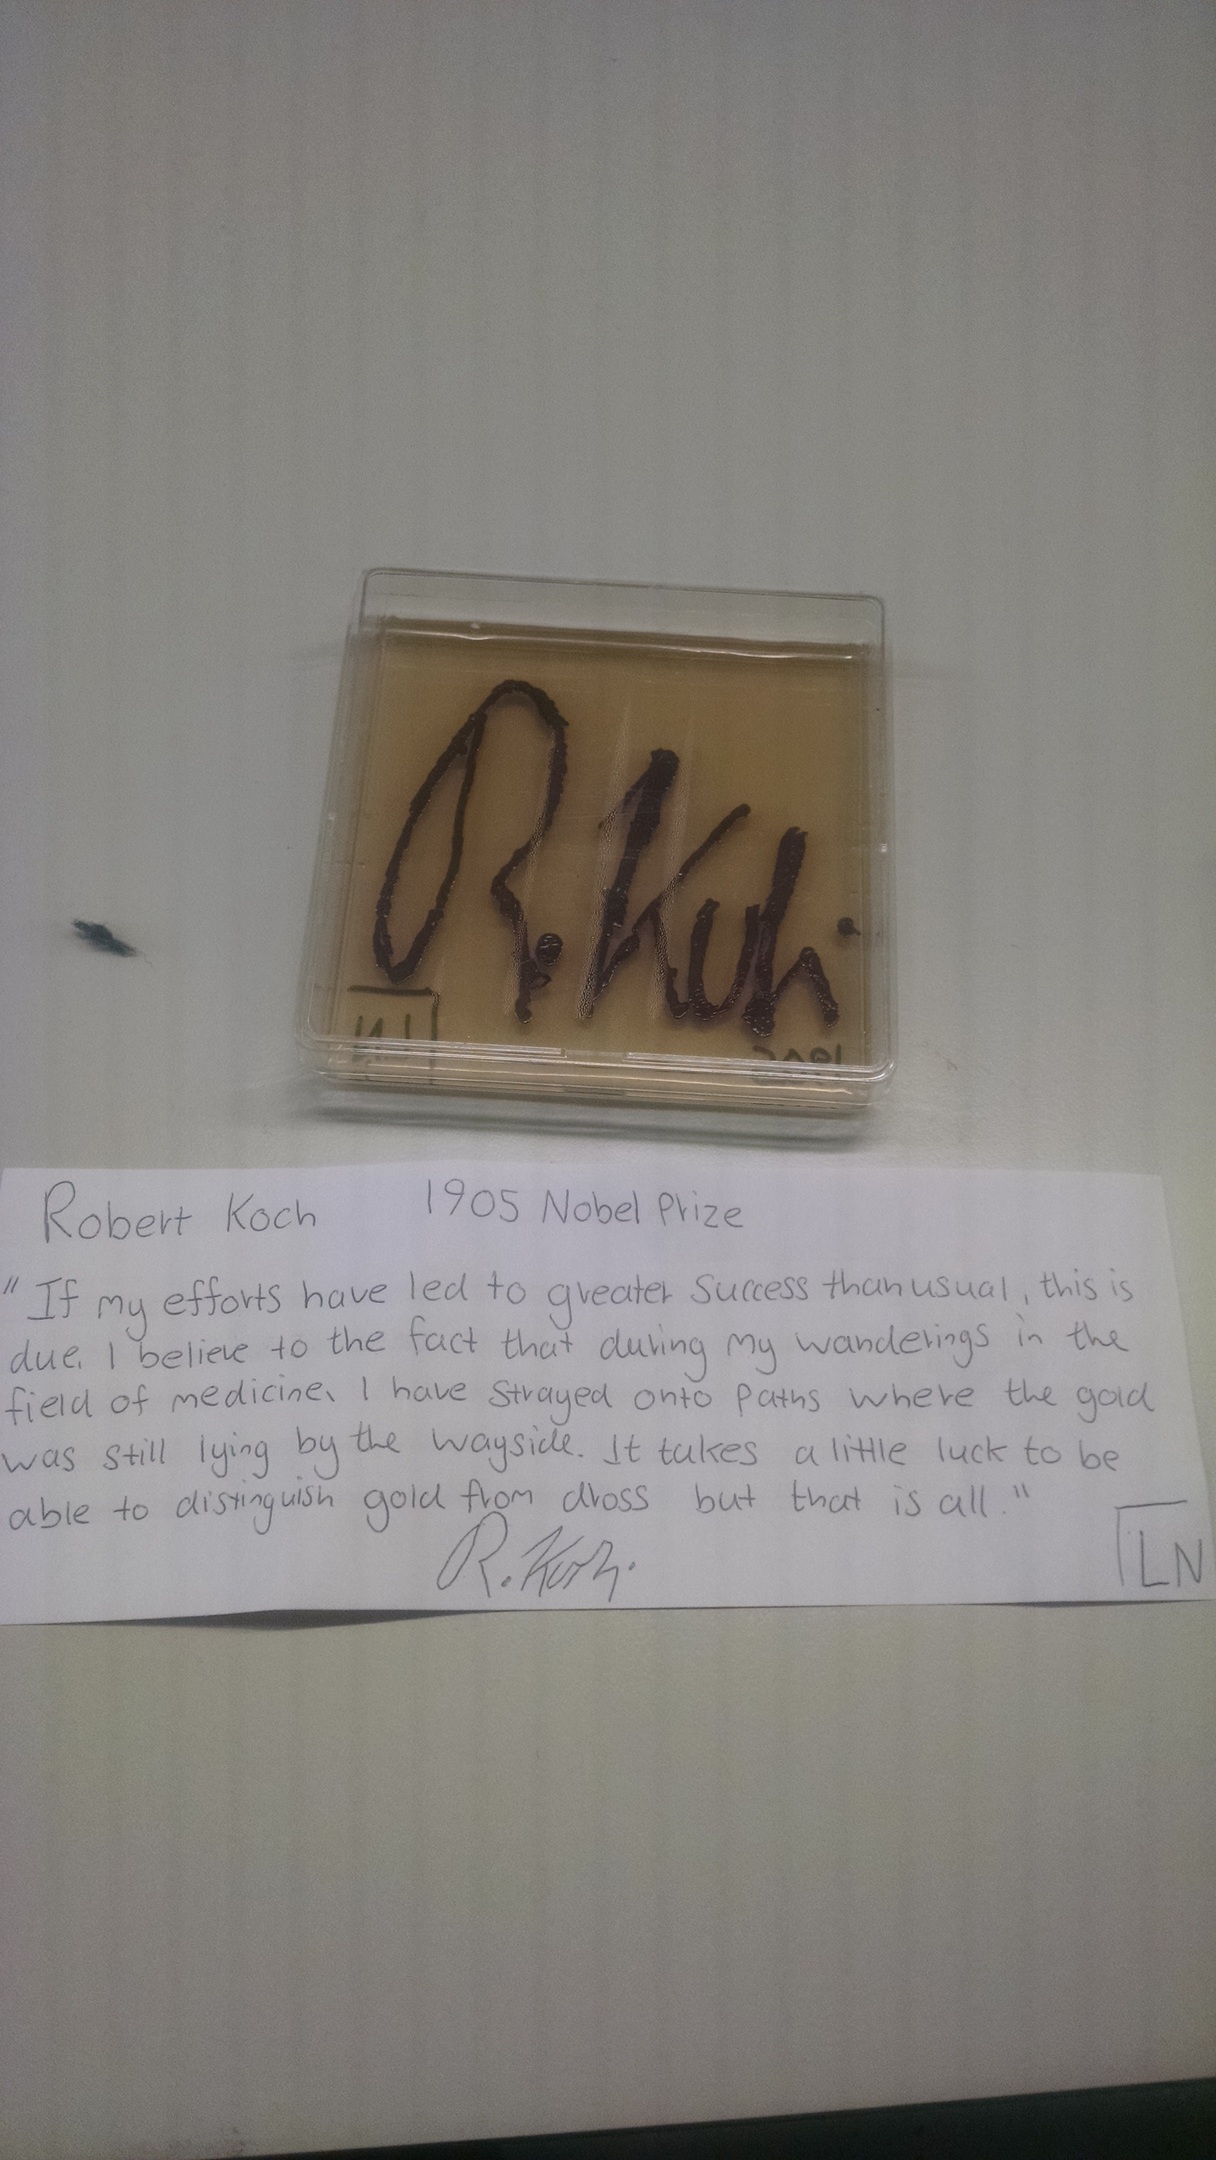 R. Koch.
LN
1905
Robert Koch 1905 Nobel Prize
"If my efforts have led to greater success than usual, this is
due, I believe to the fact that during my wanderings in the
field of medicine, I have strayed onto paths where the gold
was still lying by the wayside. It takes a little luck to be
able to distinguish gold from dross but that is all."
R. Koch.
LN